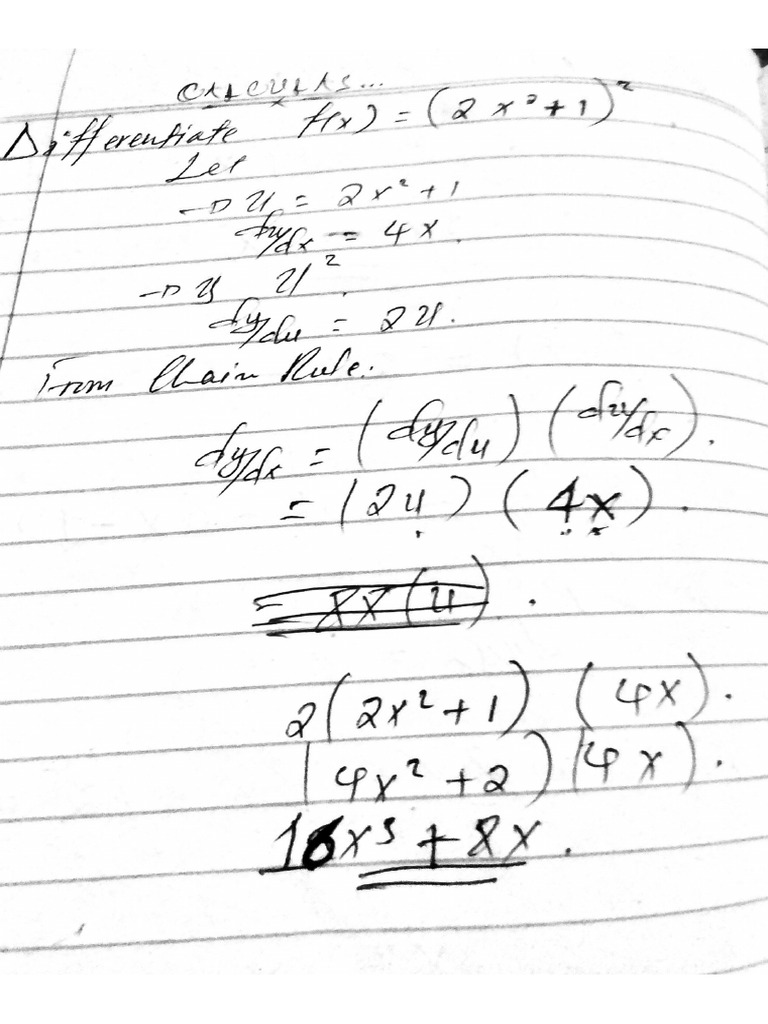 CALCULAS...
Differentiate f(x) = (2x²+1)²
Let
→ u = 2x²+1
du/dx = 4x.
→ y u².
dy/du = 2u.
From Chain Rule.
dy/dx = (dy/du) (du/dx).
= (2u) (4x).
= 8x(u).
2(2x²+1) (4x).
(4x²+2)(4x).
16x³ + 8x.